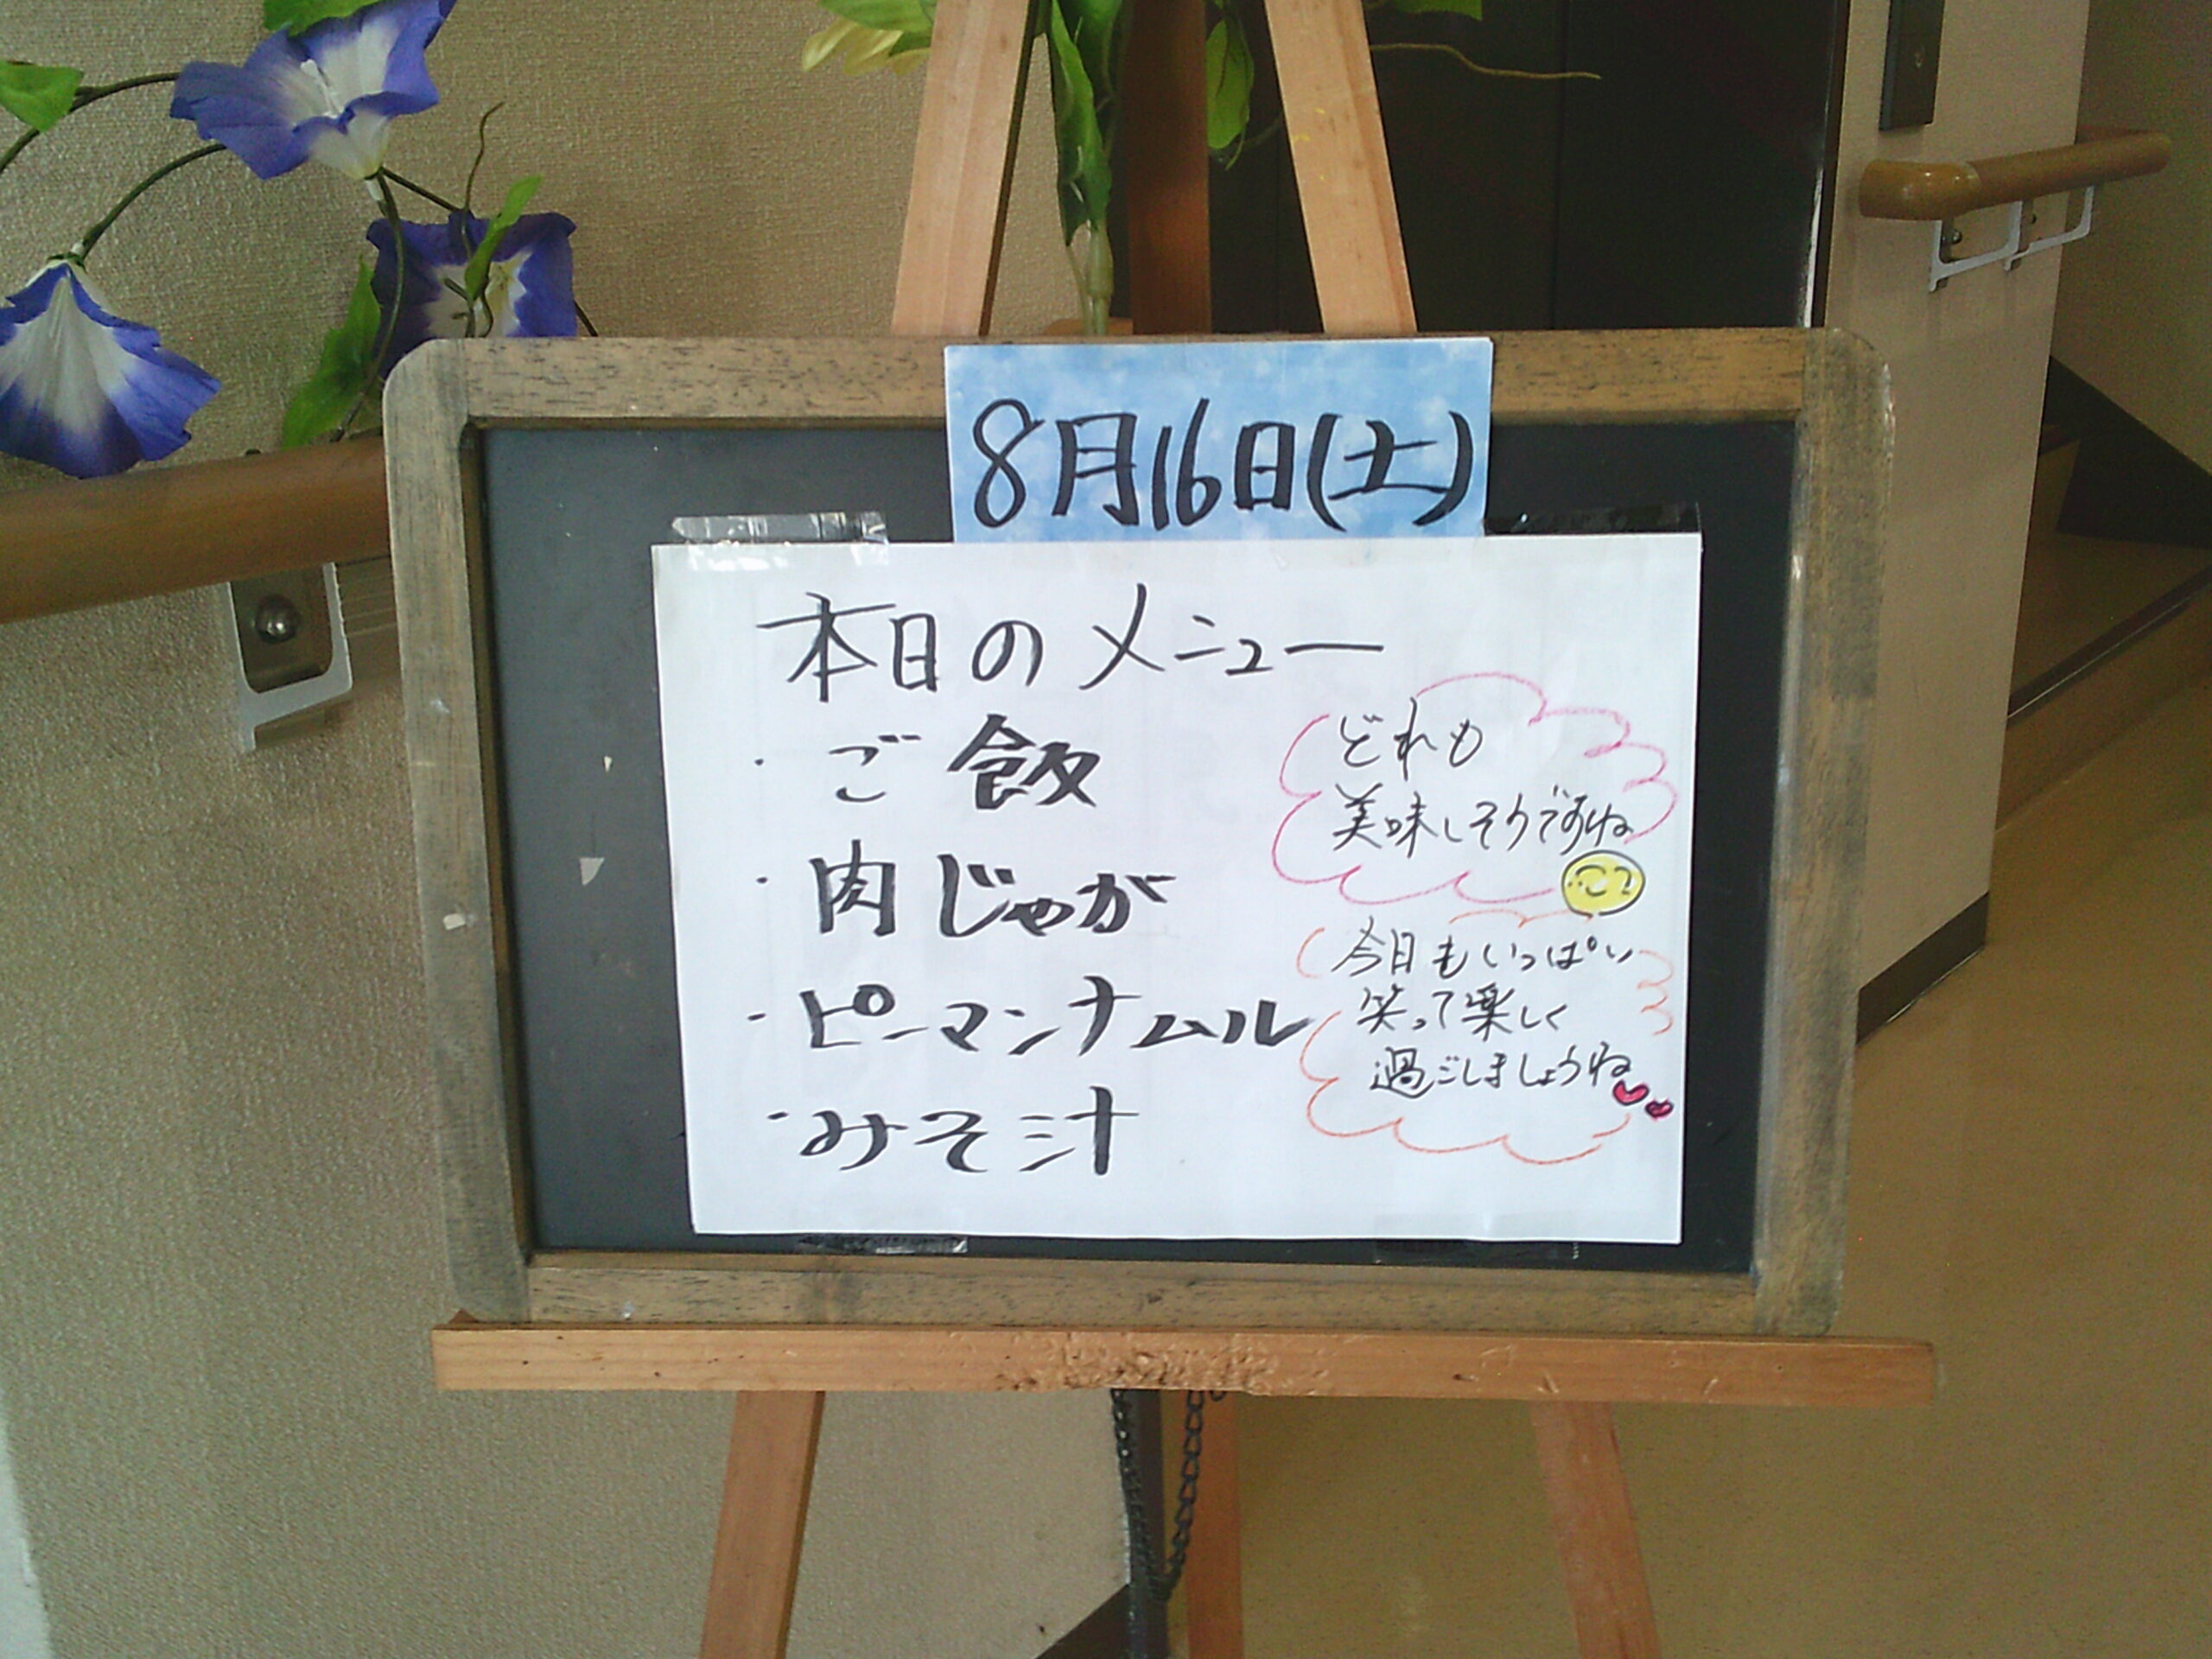 8月16日(土)
本日のメニュー
・ご飯
・肉じゃが
・ピーマンナムル
・みそ汁
どれも
美味しそうですね
今日もいっぱい
笑って楽しく
過ごしましょうね